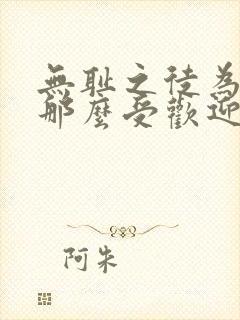 無恥之徒為
那麼受歡迎
阿朱